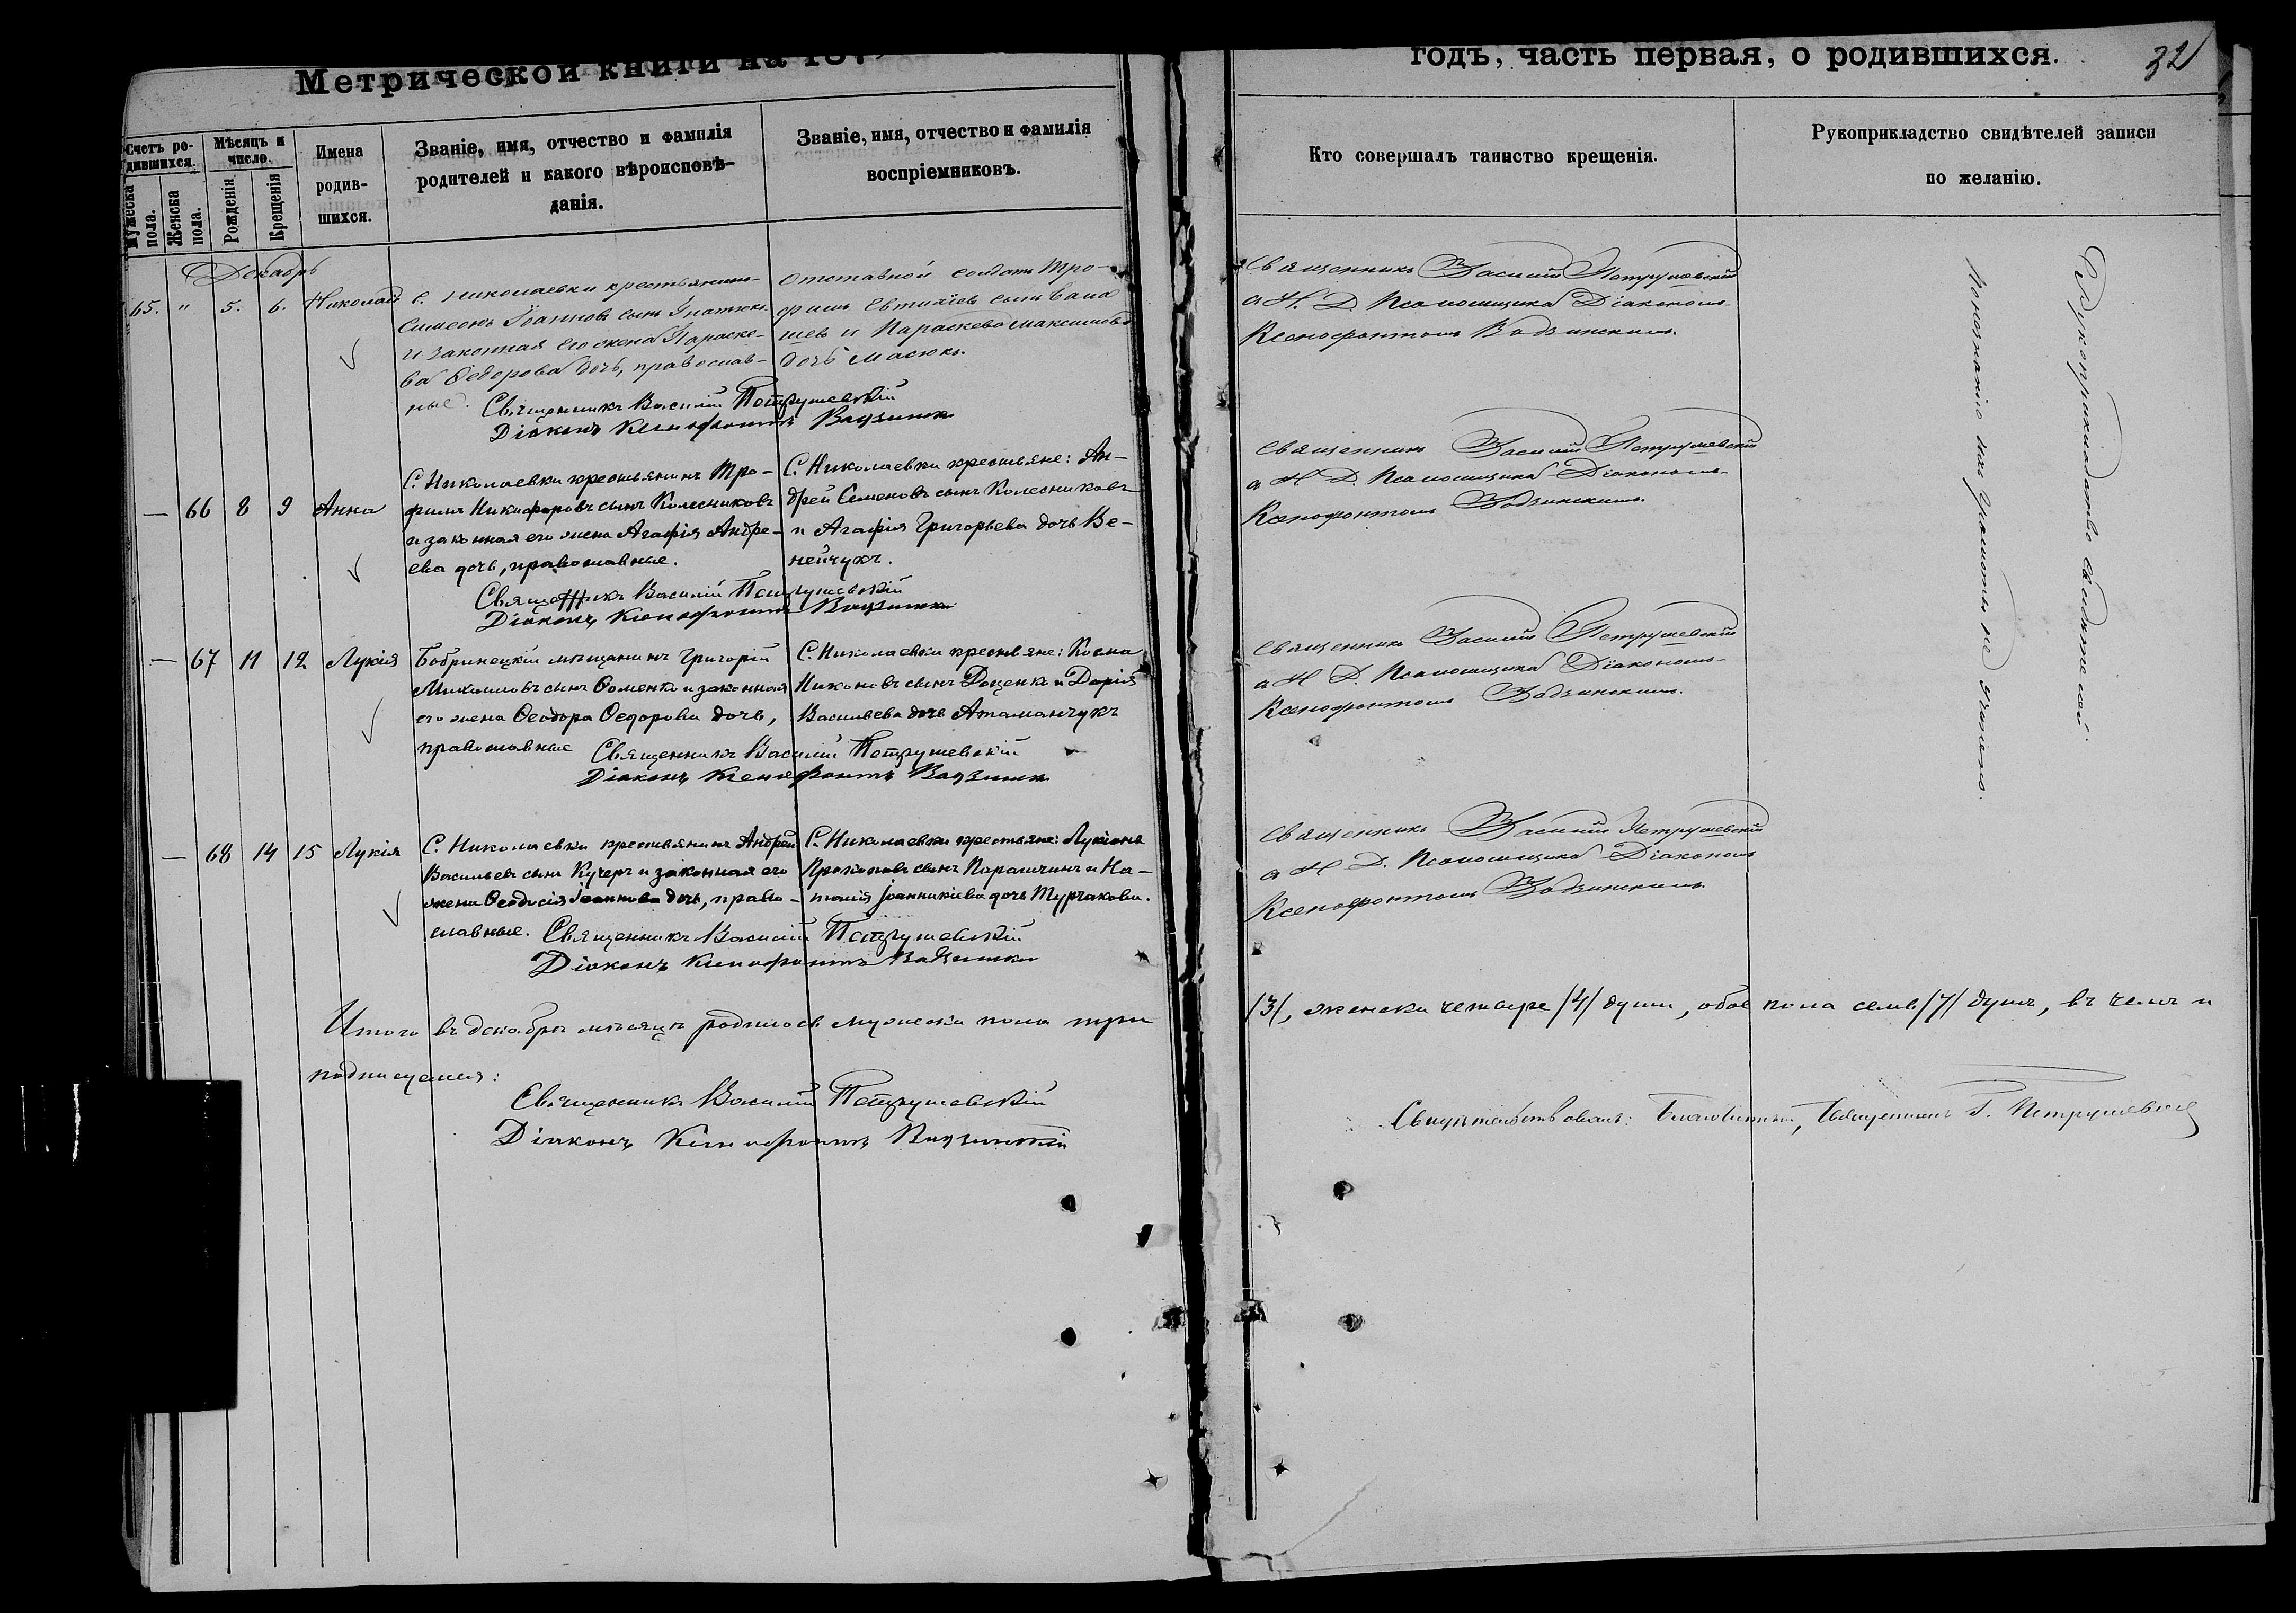 Метрической книги на 187
годъ, часть первая, о родившихся.
32
Счетъ ро-
дившихся.
Мужеска пола.
Женска пола.
Мѣсяцъ и
число.
Рожденія
Крещенія
Имена
родив-
шихся.
Званіе, имя, отчество и фамилія
родителей и какого вѣроисповѣ-
данія.
Званіе, имя, отчество и фамилія
воспріемниковъ.
Кто совершалъ таинство крещенія.
Рукоприкладство свидѣтелей записи
по желанію.
Декабрь
65. " 5. 6. Николай
С. Николаевки крестьянинъ
Симеонъ Іоанновъ сынъ Игнатюкъ
и законная его жена Параске-
ва Ѳедорова дочь, православ-
ные.
Отставной солдатъ Тро-
фимъ Евтихіевъ сынъ
и Параскева Максимова
дочь Масюкъ.
Священникъ Василій Петрушевскій
Діаконъ Ксенофонтъ
Священникъ Василій Петрушевскій
а И. Д. Псаломщика Діакономъ
Ксенофонтомъ
— 66 8 9 Анна
С. Николаевки крестьянинъ Тро-
фимъ Никифоровъ сынъ Колесниковъ
и законная его жена Агафія Андре-
ева дочь, православные.
С. Николаевки крестьяне: Ан-
дрей Семеновъ сынъ Колесниковъ
и Агафія Григорьева дочь Ве-
нейчукъ.
Священникъ Василій Петрушевскій
Діаконъ Ксенофонтъ
Священникъ Василій Петрушевскій
а И Д. Псаломщика Діакономъ
Ксенофонтомъ
— 67 11 12 Лукія
Бобринецкій мѣщанинъ Григорій
Михаиловъ сынъ Ѳоменко и законная
его жена Ѳеодора Ѳедорова дочь,
православные
С. Николаевки крестьяне: Косма
Никоновъ сынъ Доценко и Дарія
Васильева дочь Атаманчукъ
Священникъ Василій Петрушевскій
Діаконъ Ксенофонтъ
Священникъ Василій Петрушевскій
а И Д. Псаломщика Діакономъ
Ксенофонтомъ
— 68 14 15 Лукія
С. Николаевки крестьянинъ Андрей
Васильевъ сынъ Кучеръ и законная его
жена Ѳеодосія Іоаннова дочь, право-
славные.
С. Николаевки крестьяне: Лукіанъ
Прокоповъ сынъ и На-
талія Іоанникіева дочь Турчакова.
Священникъ Василій Петрушевскій
Діаконъ Ксенофонтъ
Священникъ Василій Петрушевскій
а И Д. Псаломщика Діакономъ
Ксенофонтомъ
Рукоприкладство свидѣтелей
по незнанію ими грамоты не учинено.
Итого въ декабрѣ мѣсяцѣ родилось мужеска пола три
/3/, женска четыре /4/ души, обое пола семь /7/ душъ, въ чемъ и
подписуемся:
Священникъ Василій Петрушевскій
Діаконъ Ксенофонтъ
Свидѣтельствовалъ: Благочинный, Священникъ Г. Петрушевскій